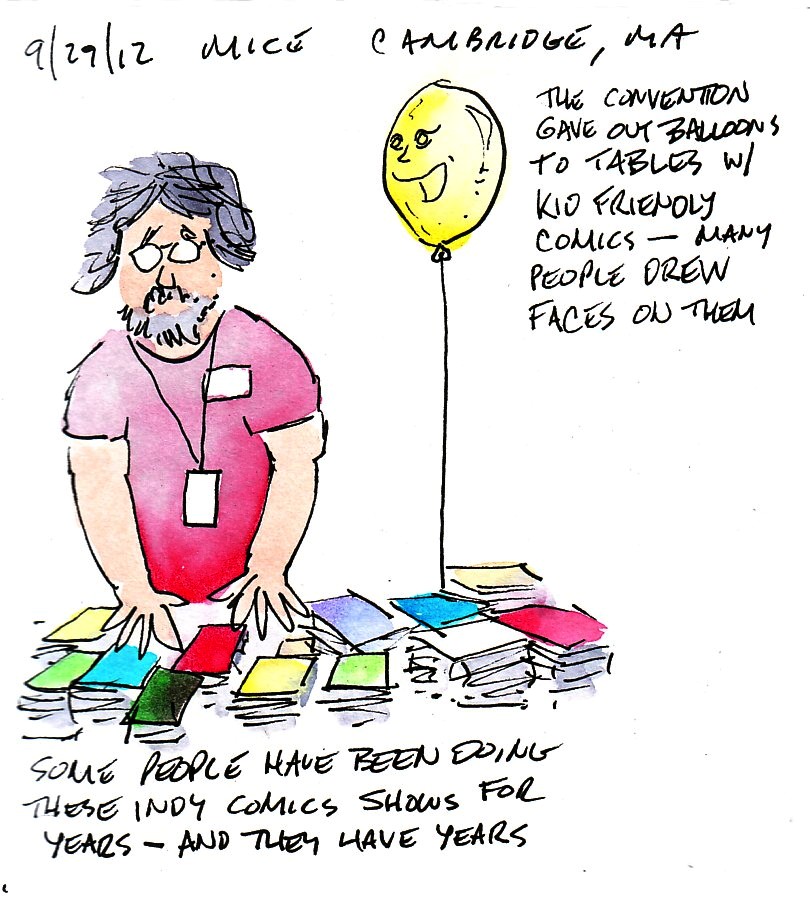 9/29/12 MICE CAMBRIDGE, MA
THE CONVENTION
GAVE OUT BALLOONS
TO TABLES W/
KID FRIENDLY
COMICS — MANY
PEOPLE DREW
FACES ON THEM
SOME PEOPLE HAVE BEEN DOING
THESE INDY COMICS SHOWS FOR
YEARS — AND THEY HAVE YEARS